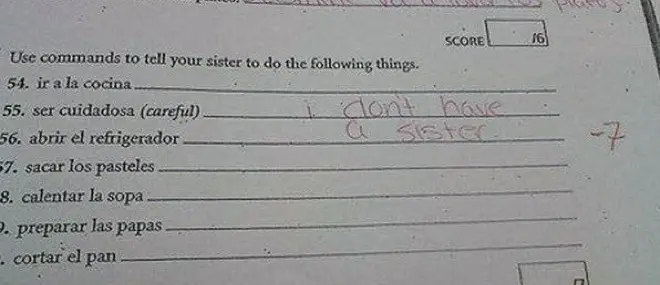 SCORE /6
Use commands to tell your sister to do the following things.
54. ir a la cocina
55. ser cuidadosa (careful) i don't have
56. abrir el refrigerador a sister. -7
57. sacar los pasteles
8. calentar la sopa
9. preparar las papas
. cortar el pan